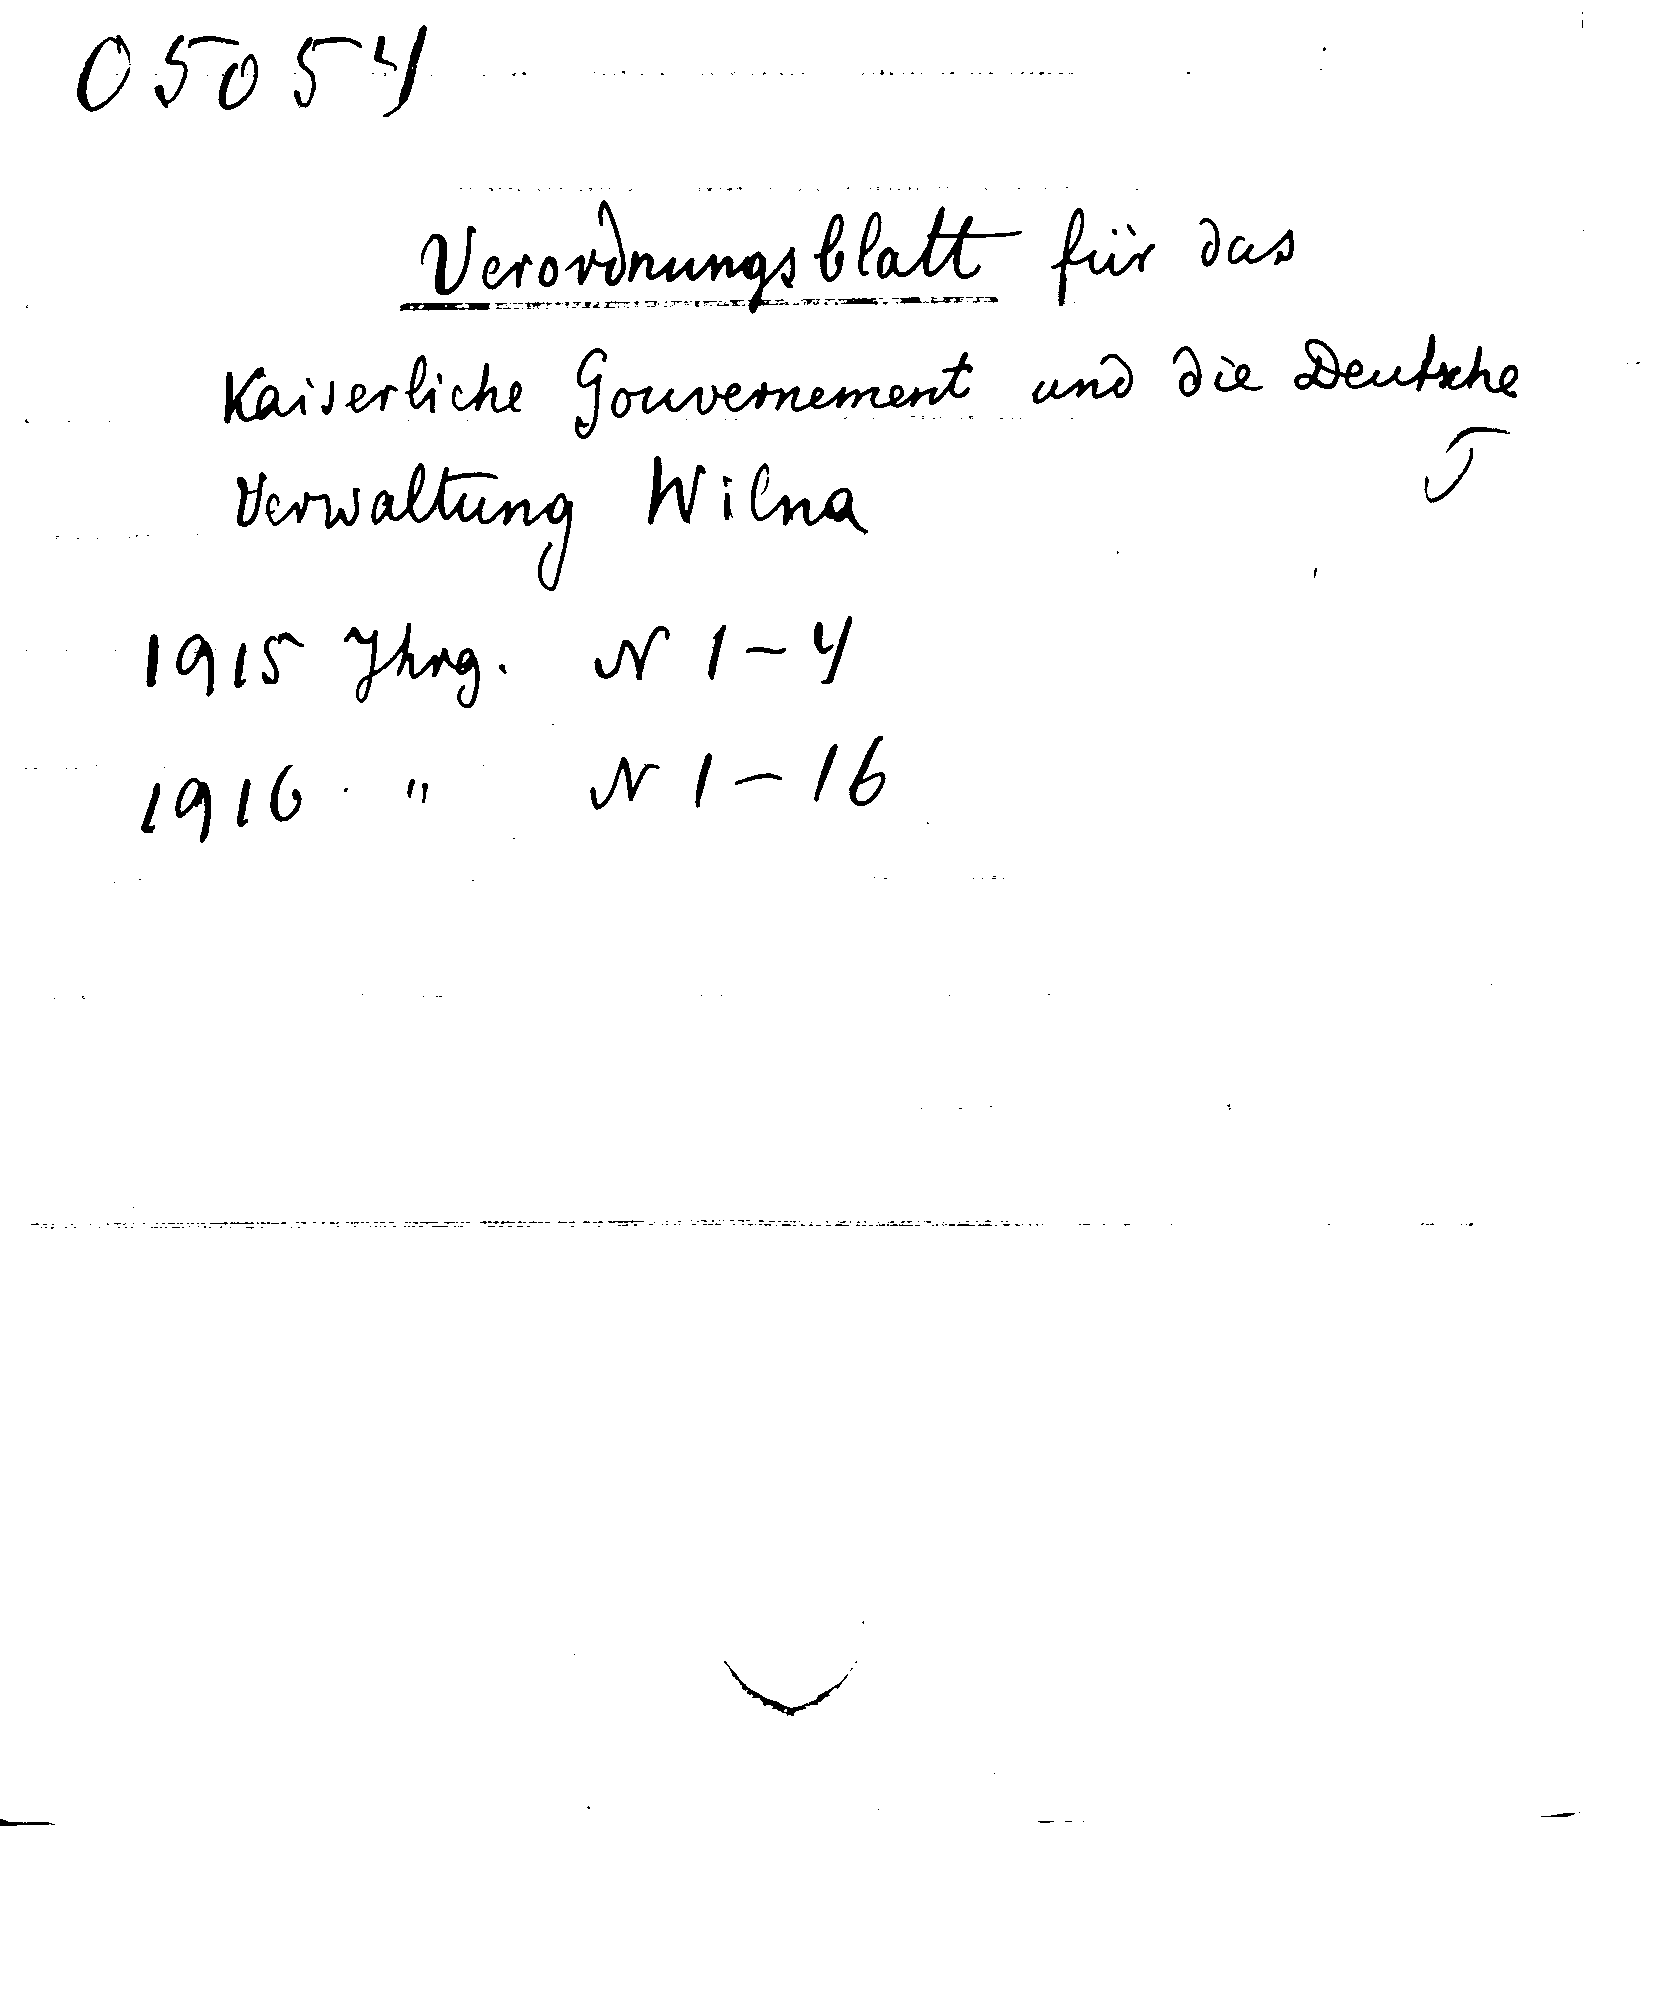 05054
Verordnungsblatt für das
Kaiserliche Gouvernement und die Deutsche
Verwaltung Wilna
1915 Jhrg. N 1-4
1916 " N 1-16